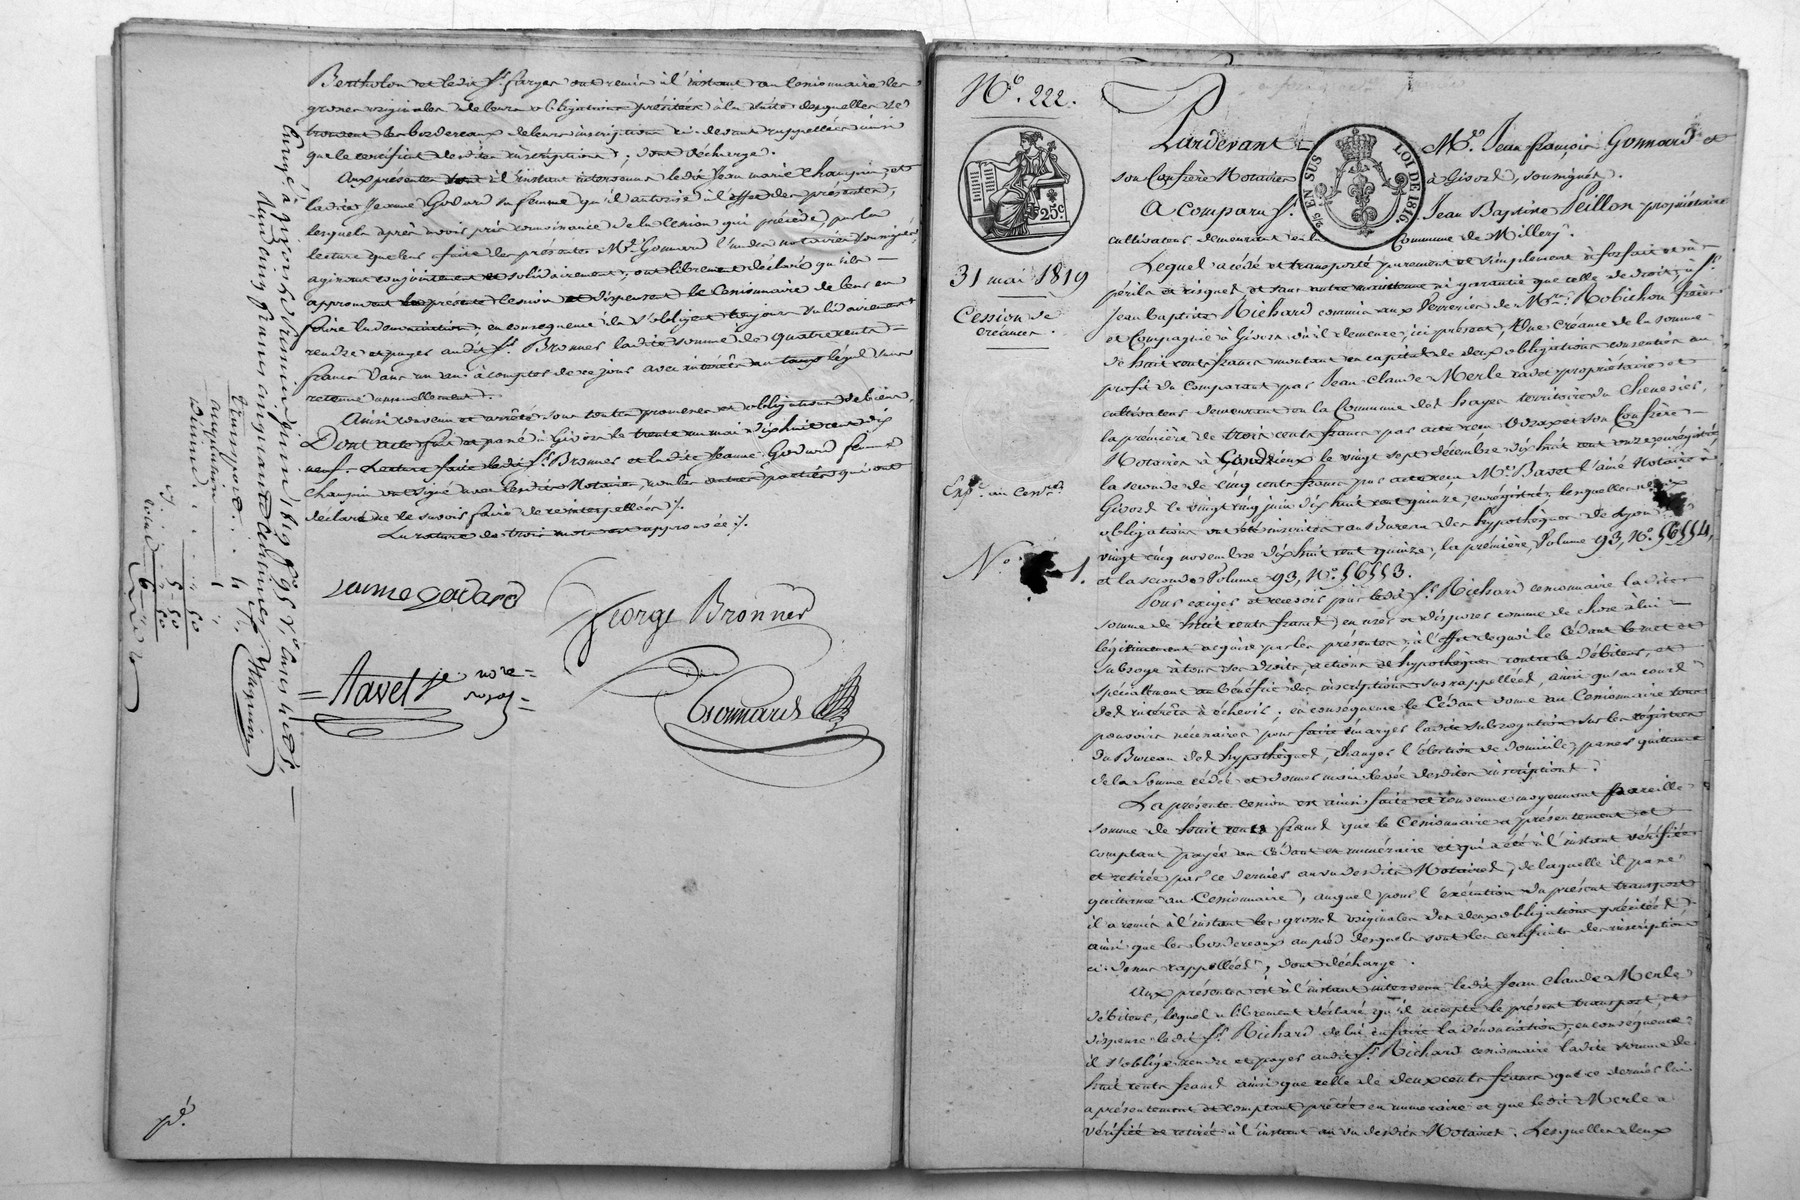 Bertholon et ledit Sr. farges ont remis à l'instant au Cessionnaire les
grosses originales de leurs obligations précitées à la suite desquelles se
trouvent les bordereaux de leurs inscriptions ci-devant rappellées ainsi
que le certificat desdites inscriptions, dont décharge.
Aux présentes sont à l'instant intervenus ledit Jean marie Chaupin et
ladite Jeanne Godard sa femme qu'il autorise à l'effet des présentes,
lesquels après avoir pris connoissance de la Cession qui précède, par la
lecture que leur a faite des présentes Me. Gonnard l'un des notaires soussignés,
agissant conjointement et solidairement, ont librement déclaré qu'ils
approuvent la présente Cession et dispensent le Cessionnaire de leur en
faire la dénonciation; en conséquence ils s'obligent toujours solidairement
rendre et payer audit Sr. Bronner ladite somme de quatre cents
francs dans un an à compter de ce jour avec intérêts au taux légal sans
retenue annuellement.
Ainsi convenu et arrêté sous toutes promesses et obligations de biens,
Dont acte fait et passé à Givors le trente un mai dix huit cent dix
neuf. Lecture faite ledit Sr. Bronner et ladite Jeanne Godard femme
Chaupin ont signé avec lesdits Notaires, non les autres parties qui ont
déclaré ne le savoir faire de ce interpellées ./.
La rature de trois mots est approuvée ./.
janne godard
George Bronner
Gonnard
Enregé. à Givors le premier juin 1819 fo. 95 Vo.
Reçu cinq francs cinquante centimes
Transport
acquisition
Dixme
pé.
No. 222.
25c
31 mai 1819
Cession de
créances.
Expé. au Cessre.
No. 1.
Pardevant Me. Jean françois Gonnard et
son Confrère Notaires à Givors, soussignés.
25c EN SUS
LOI DE 1816.
A comparu Sr. Jean Baptiste Peillon propriétaire
cultivateur demeurant en la Commune de Millery.
Lequel a cédé et transporté purement et simplement à forfait et à
périls et risques et sans autre maintenue ni garantie que celle de droit, à Sr.
Jean baptiste Richard commis aux Verreries de Mrs. Robichon frères
et Compagnie à Givors où il demeure, ici présent, Une Créance de la somme
de huit cents francs montant en capital de deux obligations consenties au
profit du Comparant par Jean Claude Merle cadet propriétaire et
cultivateur demeurant en la Commune des hayes territoire du Chenevier,
la première de trois cents francs par acte reçu et son Confrère
Notaires à Condrieux le vingt sept décembre dix huit cent onze enregistré,
la seconde de cinq cents francs par acte reçu Me. l'ainé Notaire à
Givors le vingt cinq juin dix huit cent quinze, enregistré; lesquelles
obligations ont été inscrites au Bureau des hypothèques de Lyon
vingt cinq novembre dix huit cent quinze, la première, Volume 93, No. 56554,
et la seconde Volume 93, No. 56553.
Pour exiger et recevoir par ledit Sr. Richard cessionnaire ladite
somme de huit cents francs, en user et disposer comme de chose à lui
légitimement acquise par les présentes; à l'effet de quoi le Cédant le met et
subroge à tous ses droits, actions et hypothèques contre le débiteur, et
spécialement au bénéfice des inscriptions susrappellées, ainsi qu'au cours
des intérêts à échevir; en conséquence le Cédant donne au Cessionnaire tous
pouvoirs nécessaires pour faire émarger ladite subrogation sur les régistres
du Bureau des hypothèques, changer l'élection de domicile, passer quittance
de la somme cédée et donner main levée desdites inscriptions.
La présente Cession est ainsi faite et convenue moyennant pareille
somme de huit cents francs que le Cessionnaire a présentement et
comptant payée au Cédant en numéraire et qui a été à l'instant vérifiée
et retirée par ce dernier au vu desdits Notaires, de laquelle il passe
quittance au Cessionnaire, auquel pour l'exécution du présent transport
il a remis à l'instant les grosses originales des deux obligations précitées,
ainsi que les bordereaux au pied desquels sont les certificats des inscriptions
ci-dessus rappellées, dont décharge.
Aux présentes est à l'instant intervenu ledit Jean Claude Merle
débiteur, lequel a librement déclaré qu'il accepte le présent transport, et
dispense ledit Sr. Richard de lui en faire la dénonciation; en conséquence
il s'oblige rendre et payer audit Sr. Richard cessionnaire ladite somme de
huit cents francs ainsi que celle de deux cents francs que ce dernier lui
a présentement et comptant prêtée en numéraire et que ledit Merle a
vérifiée et retirée à l'instant au vu desdits Notaires. Lesquelles deux